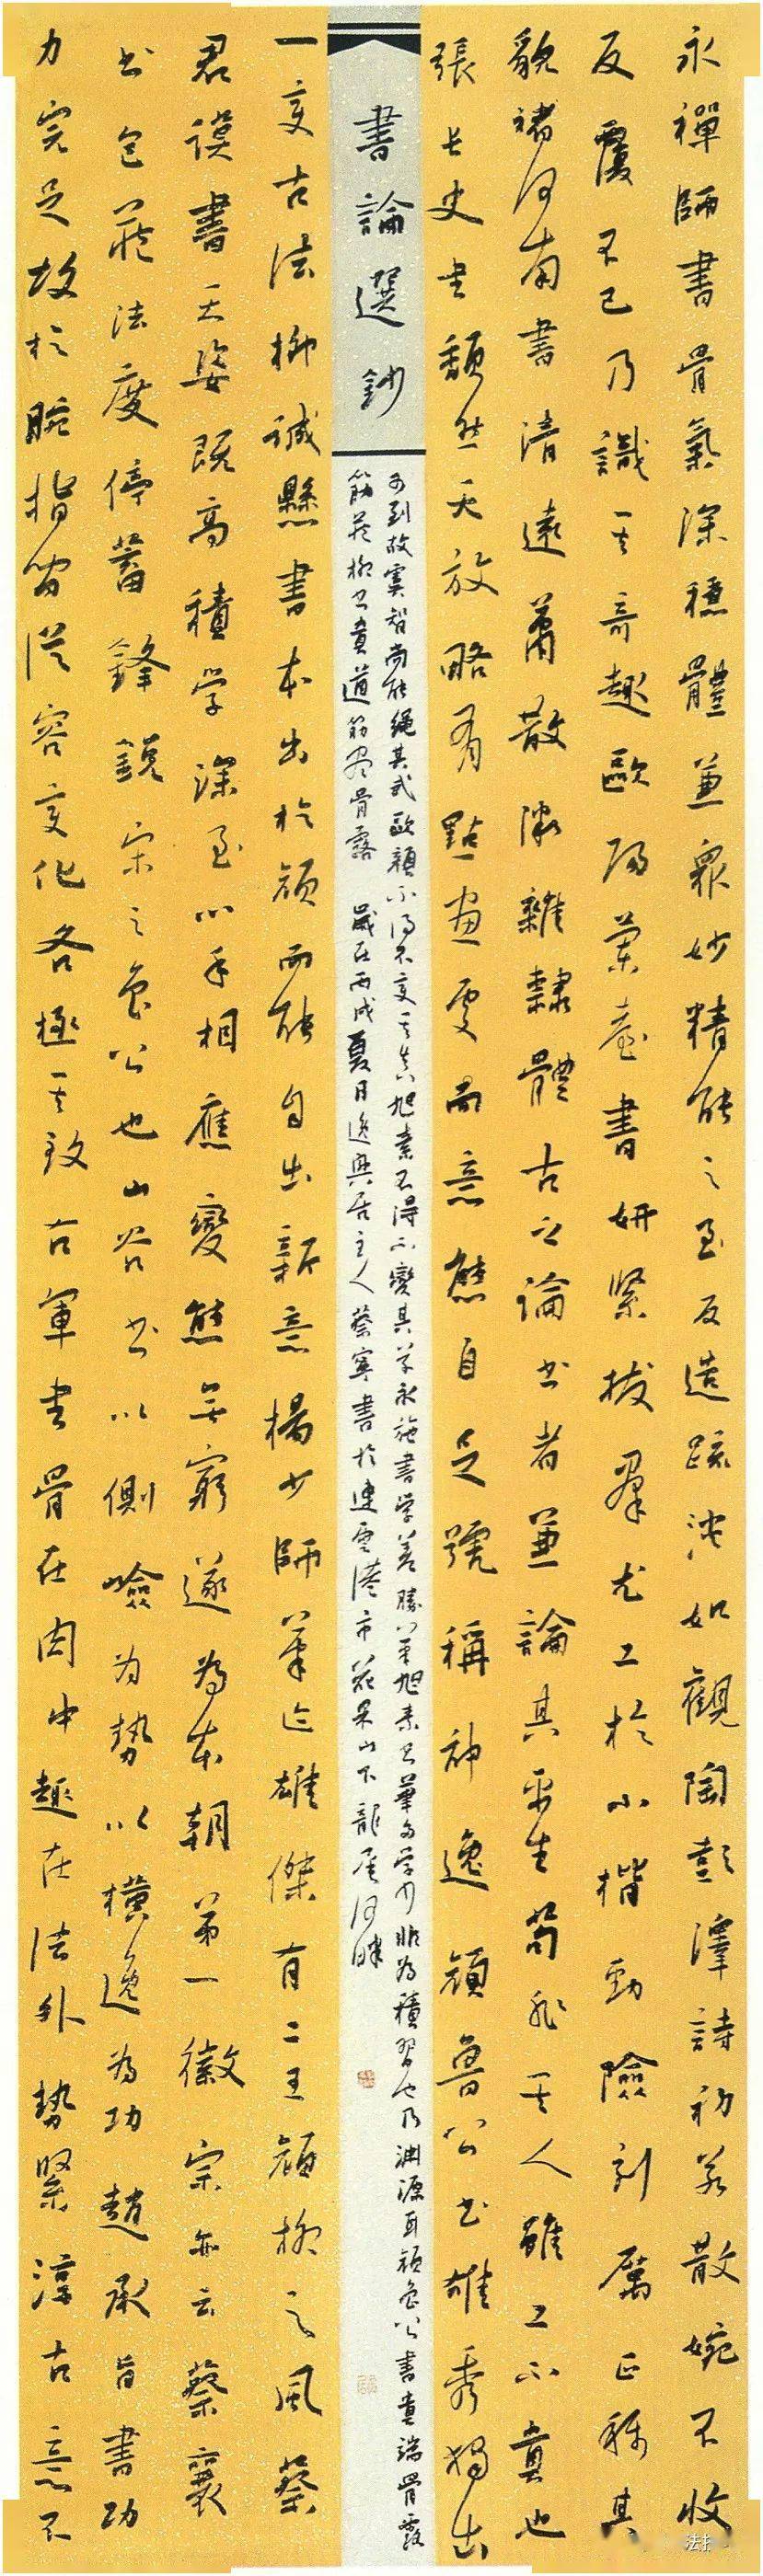 永禪師書骨氣深穩體兼衆妙精能之至反造疏淡如觀陶彭澤詩初若散婉不收
反覆不已乃識其奇趣歐陽蘭臺書妍緊拔羣尤工於小楷勁險刻厲正稱其
貌褚河南書清遠蕭散微雜隸體古之論書者兼論其平生苟非其人雖工不貴也
張長史書頹然天放略有點畫處而意態自足號稱神逸顏魯公書雄秀獨出
書論選鈔
一變古法柳誠懸書本出於顏而能自出新意楊少師筆迹雄傑有二王顏柳之風蔡
君謨書天姿既高積學深至心手相應變態無窮遂為本朝第一徽宗亦云蔡襄
書包藏法度停蓄鋒銳宋之魯公也山谷書以側險为勢以横逸為功趙承旨書功
力完足故於腕指間從容变化各極其致右軍書骨在肉中趣在法外勢緊淳古意不
可到故虞智尚能繩其武歐顏不得不变其真旭素不得不變其草永施書學差勝旭素之筆學非為積習也乃淵源耳顏魯公書貴端骨露
筋藏柳書貴遒筋盡骨露 歲在丙戌夏日逸興居主人蔡寧書於連雲港市花果山下龍尾河畔
法扌